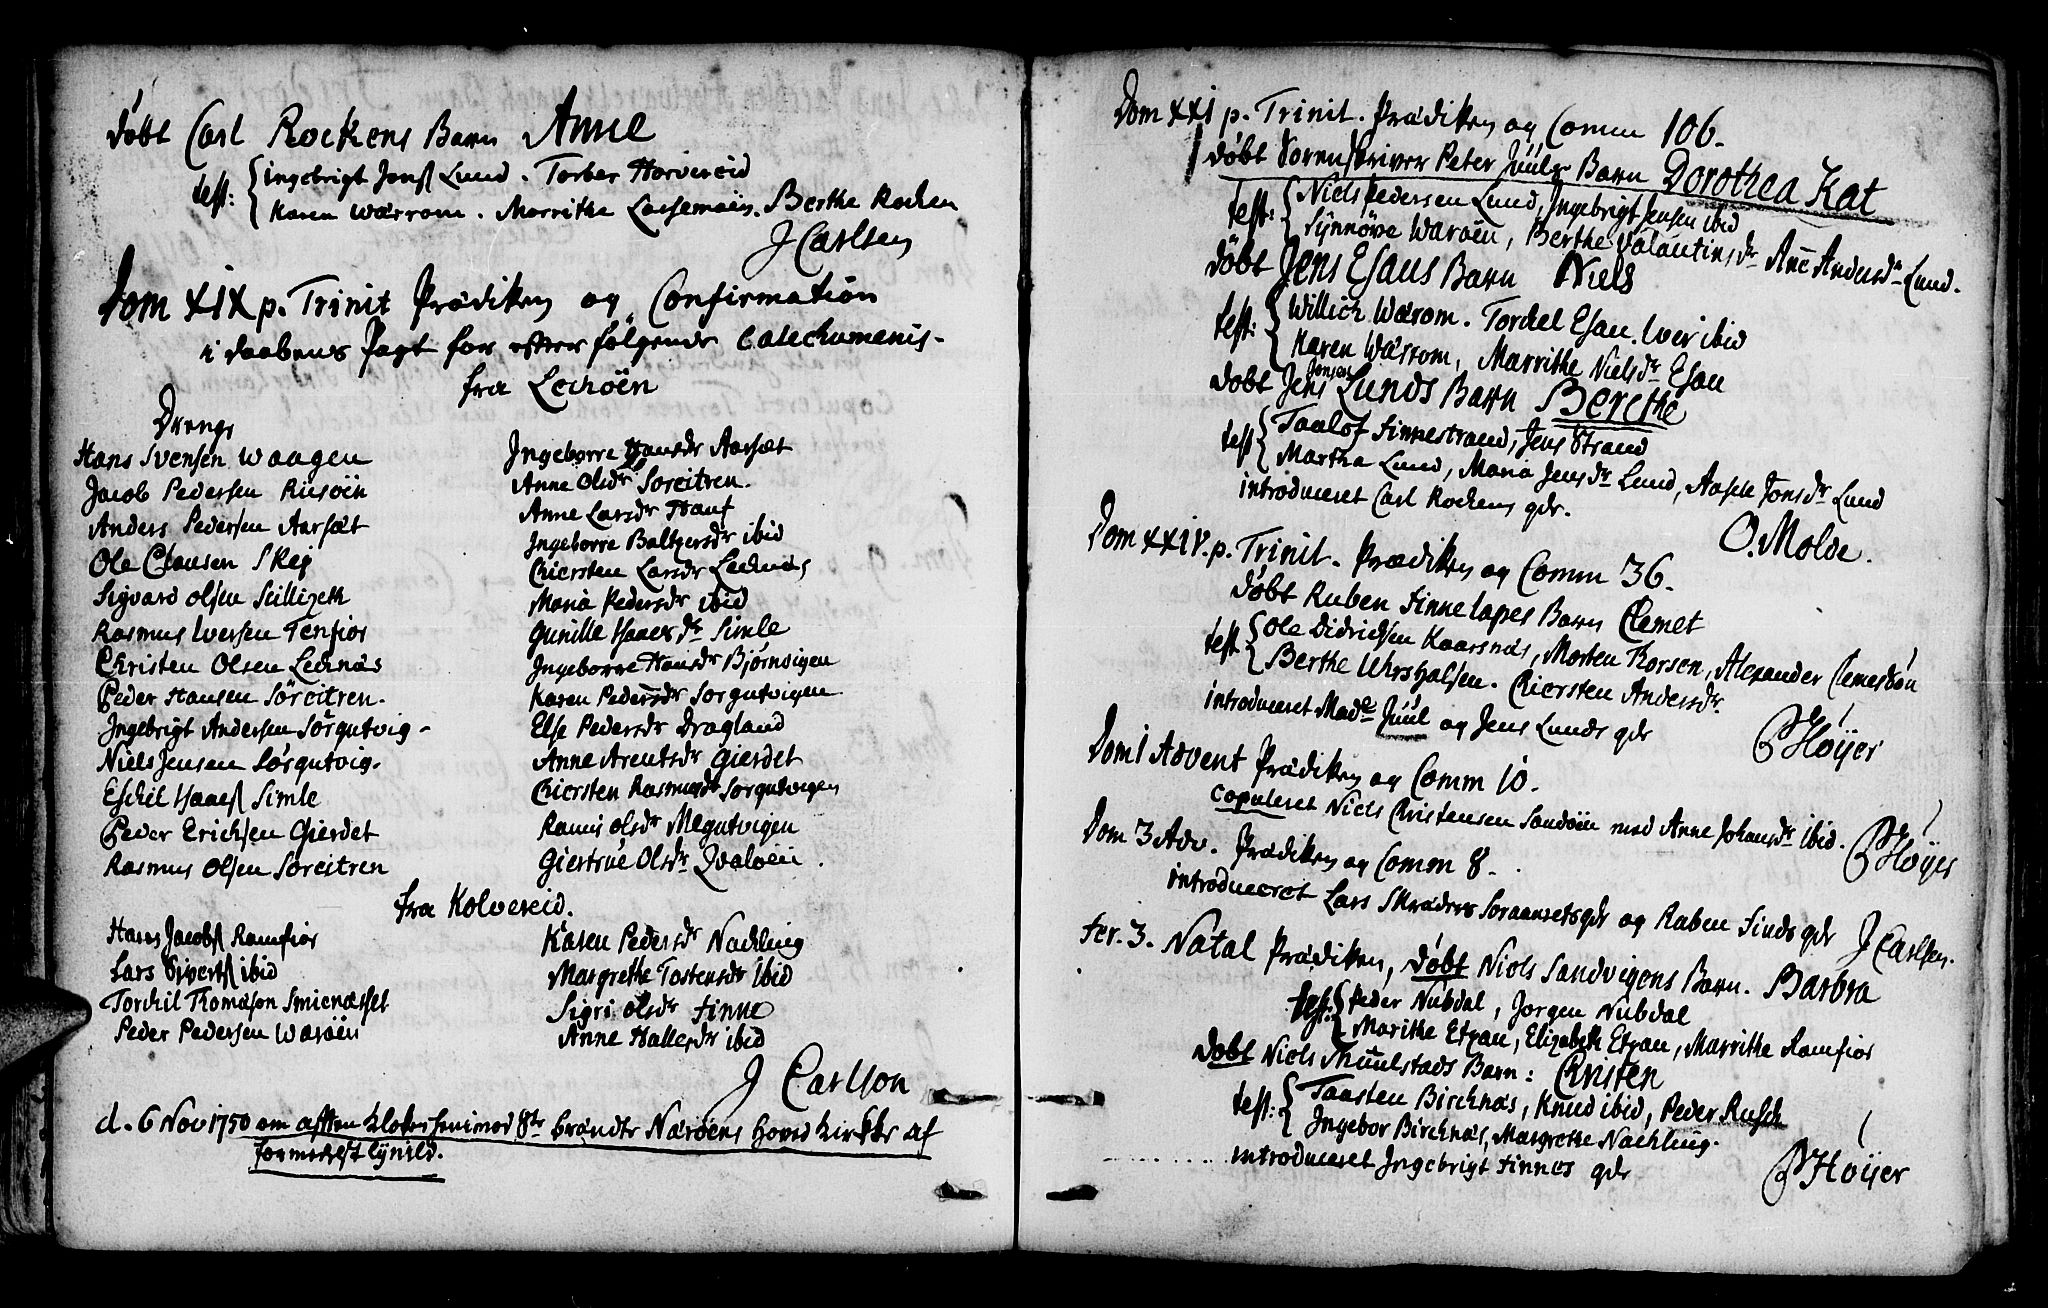 døbt Carl Rockens Barn Anne
test: Ingebrigt Jonss Lund. Torber Horvereid
Karen Wærrom. Marrithe Berthe Rocken
J Carlsen
Dom XIX p. Trinit Prædiken og Confirmation
i daabens Pagt for efterfølgende Catechumenis-
fra Lechöen
Drenge
Hans Svensen Waagen
Jacob Pedersen Riisöen
Anders Pedersen Aarsæt
Ole Clausen Skej
Sigvard Olsen Seilligeth
Rasmus Iversen Tenfior
Christen Olsen Lechnæs
Peder Hansen Söreitren.
Ingebrigt Andersen Sörgutvig-
Niels Jensen Sörgutvig.
Eschil Haaess Simle
Peder Erichsen Gierdet
Rasmus Olsen Söreitren
Ingeborre Hansdr Aarsæt
Anne Olsdr Soreitren.
Anne Larsdr Hauf
Ingeborre Baltzersdr ibid
Chiersten Larsdr Lechnæs
Maria Pedersdr ibid
Gunille Haaesdr Simle
Ingeborre Hansdr Björnvigen
Karen Pedersdr Sorgutvigen
Else Pedersdr Dragland
Anne Arentsdr Gierdet
Chiersten Rasmusdr Sorgutvigen
Rannis Olsdr Megutvigen
Giertrue Olsdr Qvalöen.
fra Kolvereid.
Hans Jacobss Ramfior
Lars Sivertss ibid
Torchil Thomason Smienæsset
Peder Pedersen Waröen
Karen Pedersdr Nachling
Margrethe Tostensdr ibid
Sigri Olsdr Finne
Anne Hallesdr ibid
J Carlson
d. 6 Nov 1750 om afften Klokes 8te brændte Næröens Hoved Kirkke af
Lynild.
Dom XXI p. Trinit. Prædiken og Comm 106.
døbt Sorenskriver Peter Juuls Barn Dorothea Kat
test: Niels Pedersen Lund, Ingebrigt Jensen ibid
Synnöve Waröen, Berthe Valantinsdr Ane Andersdr Lund.
døbt Jens Esaus Barn Niels
test: Willich Wærom. Torchel Esau. Iver ibid
Karen Wærrom, Marrithe Nielsdr Esau
døbt Jens Jonses Lunds Barn Berethe
test Taalof Finnestrand, Jens Strand
Martha Lund, Maria Jensdr Lund, Aasele Jonsdr Lund
introduceret Carl Rockens qdr.
O. Molde.
Dom XXIV. p. Trinit. Prædiken og Comm 36.
døbt Ruben Finnelapes Barn Clemet
test Ole Didrichsen Kaarsnæs, Morten Thorsen, Alexander
Berthe Chiersten Andersdr.
introduceret Made Juul og Jens Lunds qdr
PHöyer
Dom 1 Advent Prædiken og Comm 10.
Copuleret Niels Christensen Sandöen med Anne Johansdr ibid.
PHöyer
Dom 3 Adv. Prædiken og Comm 8.
introduceret Lars Skræders qdr og Ruben Finds qdr J Carlsen.
fer. 3. Natal Prædiken, døbt Niels Sandvigens Barn. Barbra
test: Peder Nubdal, Jørgen Nubdal
Marithe Etran, Elizabeth Etran, Marrithe Ramfior
døbt Niels Barn: Christen
test: Taasten Birchnæs, Knud ibid, Peder Rusch
Ingebor Birchnæs, Margrethe Nachling.
introduceret Ingebrigt Finnes qdr
PHöyer